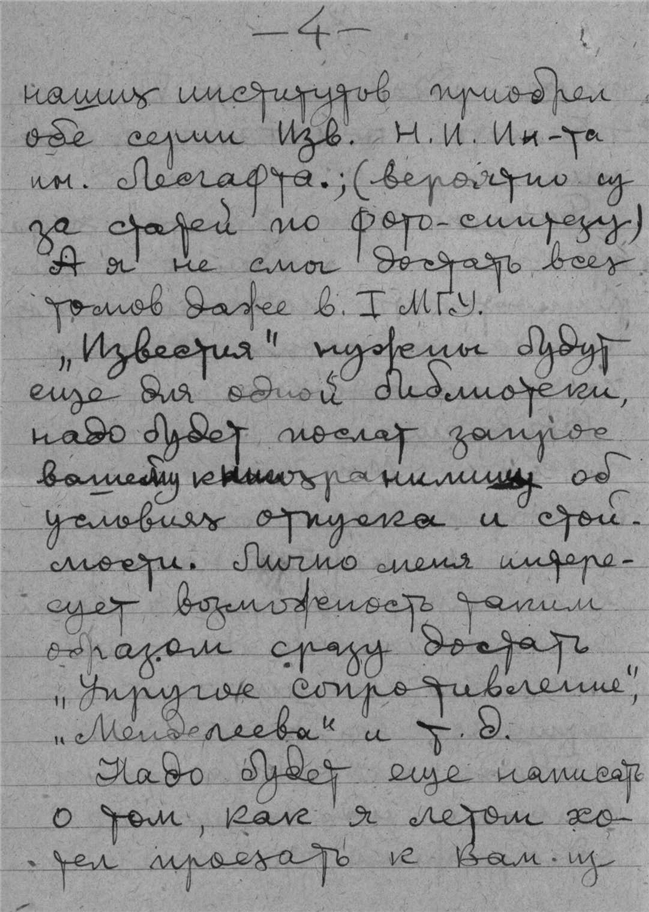 — 4 —
наших институтов приобрел
обе серии Изв. Н.И. Ин-та
им. Лесгафта.; (вероятно из
за статей по фото-синтезу)
А я не смог достать всех
томов даже в I МГУ.
„Известия" нужны будут
еще для одной библиотеки,
надо будет послат запрос
вашему книгохранилищу об
условиях отпуска и стои-
мости. Лично меня интере-
сует возможность таким
образом сразу достать
„Упругое сопротивление",
„Менделеева" и т.д.
Надо будет еще написать
о том, как я летом хо-
тел проехать к Вам из